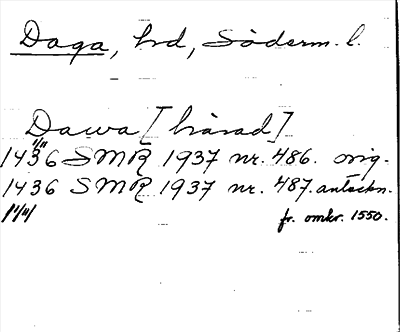 Daga, hd, Söderm. l.
Dawa [härad]
1436 SMR 1937 nr. 486. orig.
1436 SMR 1937 nr. 487. anteckn.
fr. omkr. 1550.